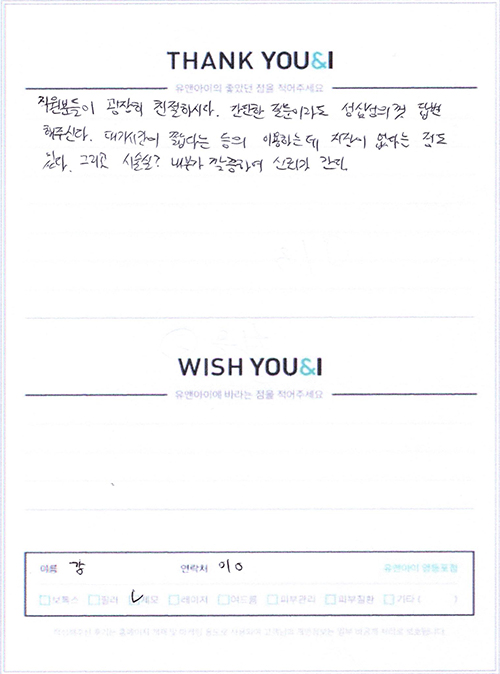 THANK YOU&I
유앤아이의 좋았던 점을 적어주세요
직원분들이 굉장히 친절하시다. 간단한 질문이라도 성심성의껏 답변
해주신다. 대기시간이 짧다는 등의 이용하는데 지장이 없다는 점도
좋다. 그리고 시술실? 내부가 깔끔하여 신뢰가 간다.
WISH YOU&I
유앤아이에 바라는 점을 적어주세요
이름 강 연락처 010 유앤아이 영등포점
보톡스 필러 제모 레이저 여드름 피부관리 피부질환 기타 ( )